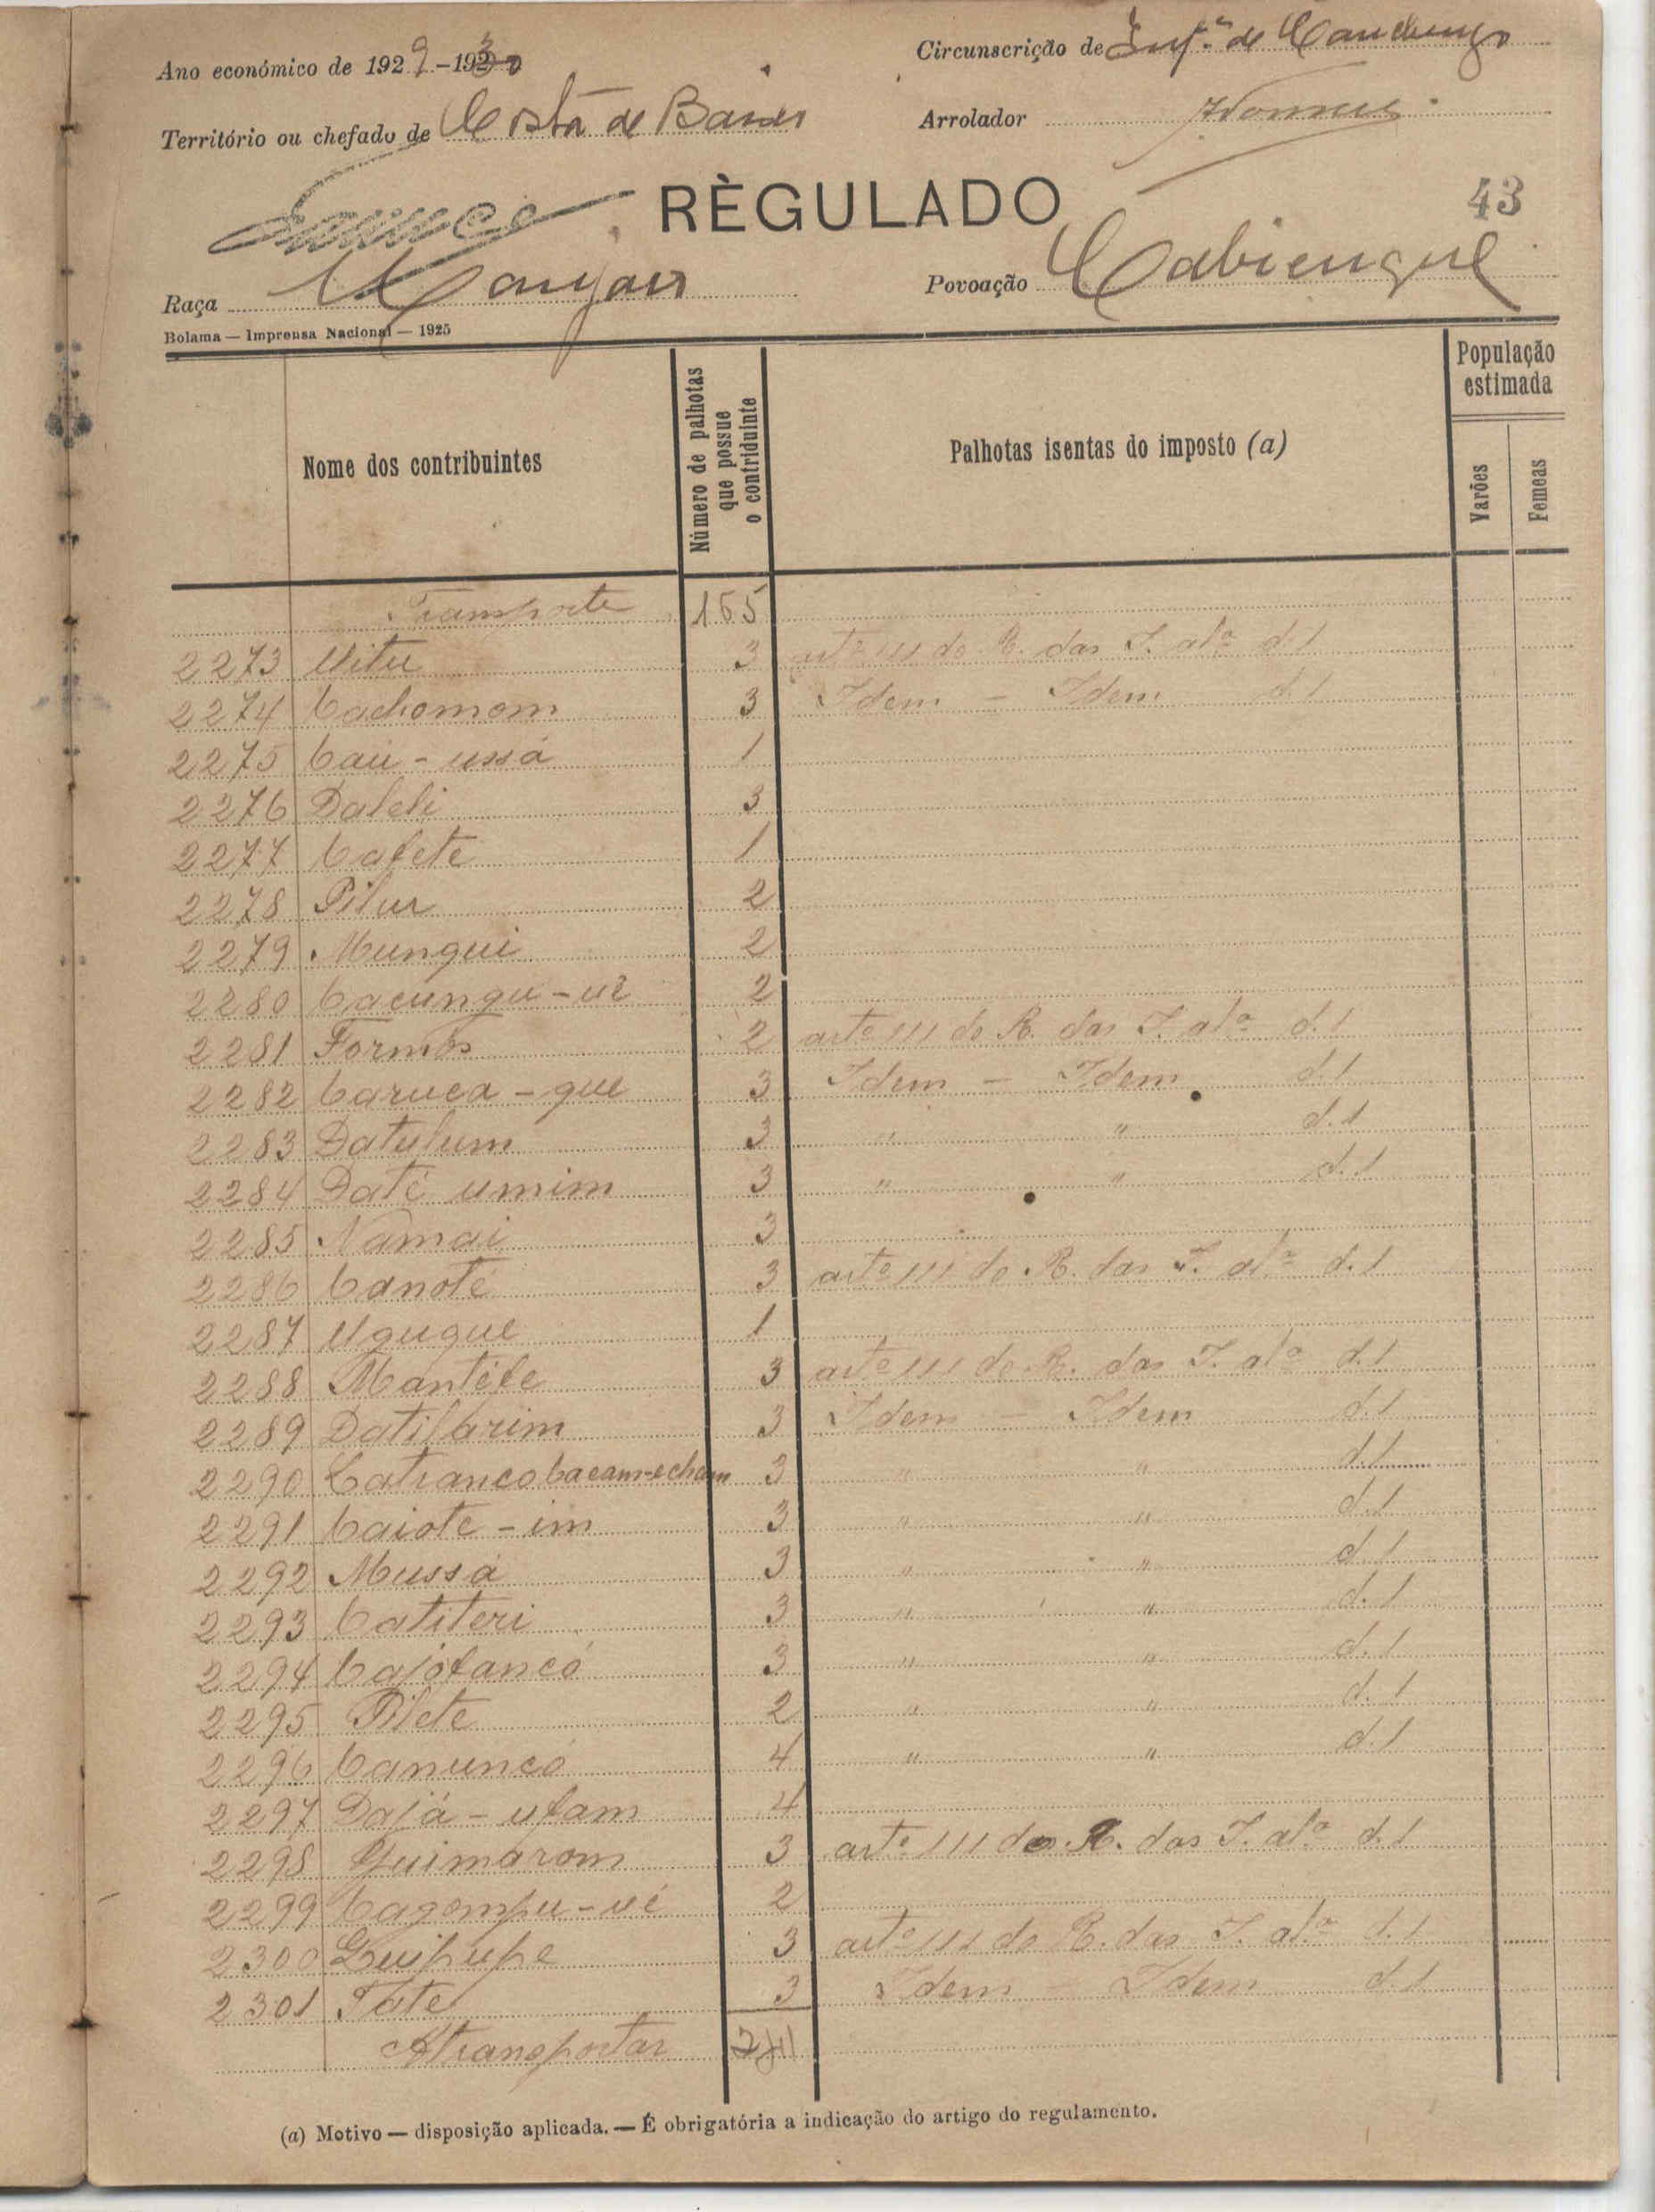 Ano económico de 1929-1930
Circunscrição de Inf.ª de Canchungo
Território ou chefado de Costa de Baixo
Arrolador
RÈGULADO
43
Raça Manjaco
Povoação Cabienque
Bolama — Imprensa Nacional — 1925
Nome dos contribuintes
Número de palhotas que possue o contriduinte
Palhotas isentas do imposto (a)
População estimada
Varões
Femeas
Transporte 165
2273 Uitu 3 artº 111 do R. das I. alª d.1
2274 Cachomom 3 Idem - Idem d.1
2275 Caú-ussá 1
2276 Daleli 3
2277 Cafete 1
2278 Pilur 2
2279 Mungui 2
2280 Cacungu-ué 2
2281 Formós 2 artº 111 do R. das I. alª d.1
2282 Caruca-que 3 Idem - Idem d.1
2283 Datulum 3 " " d.1
2284 Daté umim 3 " " d.1
2285 Namai 3
2286 Canoté 3 artº 111 do R. das I. alª d.1
2287 Uguque 1
2288 Mantéfe 3 artº 111 do R. das I. alª d.1
2289 Datilarim 3 Idem - Idem d.1
2290 Catranco 3 " " d.1
2291 Caiote-im 3 " " d.1
2292 Mussá 3 " " d.1
2293 Catiteri 3 " " d.1
2294 Cajofancó 3 " " d.1
2295 Pilete 2 " " d.1
2296 Canuncó 4 " " d.1
2297 Dajá-ufam 4
2298 Guimarom 3 artº 111 do R. das I. alª d.1
2299 Cagompu-ué 2
2300 Guipupe 3 artº 111 do R. das I. alª d.1
2301 Tate 3 Idem - Idem d.1
A transportar 241
(a) Motivo — disposição aplicada. — É obrigatória a indicação do artigo do regulamento.